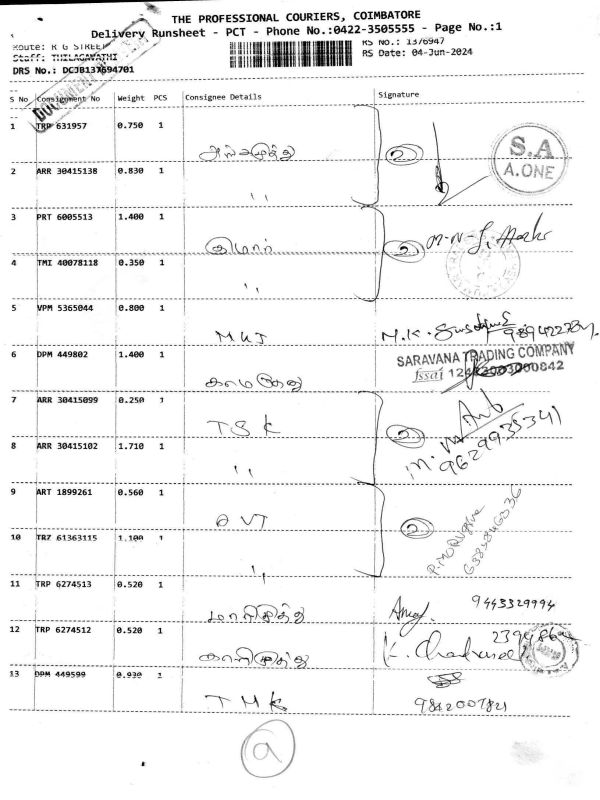 THE PROFESSIONAL COURIERS, COIMBATORE
Delivery Runsheet - PCT - Phone No.:0422-3505555 - Page No.:1
Route: R G STREET
RS No.: 1376947
Staff: THILAGAVATHI
RS Date: 04-Jun-2024
DRS No.: DCJB137694701
S No Consignment No Weight PCS Consignee Details Signature
1 TRP 631957 0.750 1
S.A
A.ONE
2
2 ARR 30415138 0.830 1
,,
3 PRT 6005513 1.400 1
குமார்
2
4 TMI 40078118 0.350 1
,,
5 VPM 5365044 0.800 1
MKJ
M.K.
6 DPM 449802 1.400 1
காமதேனு
SARAVANA TRADING COMPANY
fssai
7 ARR 30415099 0.250 1
TSK
2
8 ARR 30415102 1.710 1
,,
9629935341
9 ART 1899261 0.560 1
2
10 TRZ 61363115 1.100 1
,,
11 TRP 6274513 0.520 1
மாரிமுத்து
9443329994
12 TRP 6274512 0.520 1
காளிமுத்து
13 DPM 449599 0.930 1
TMK
9842007821
a